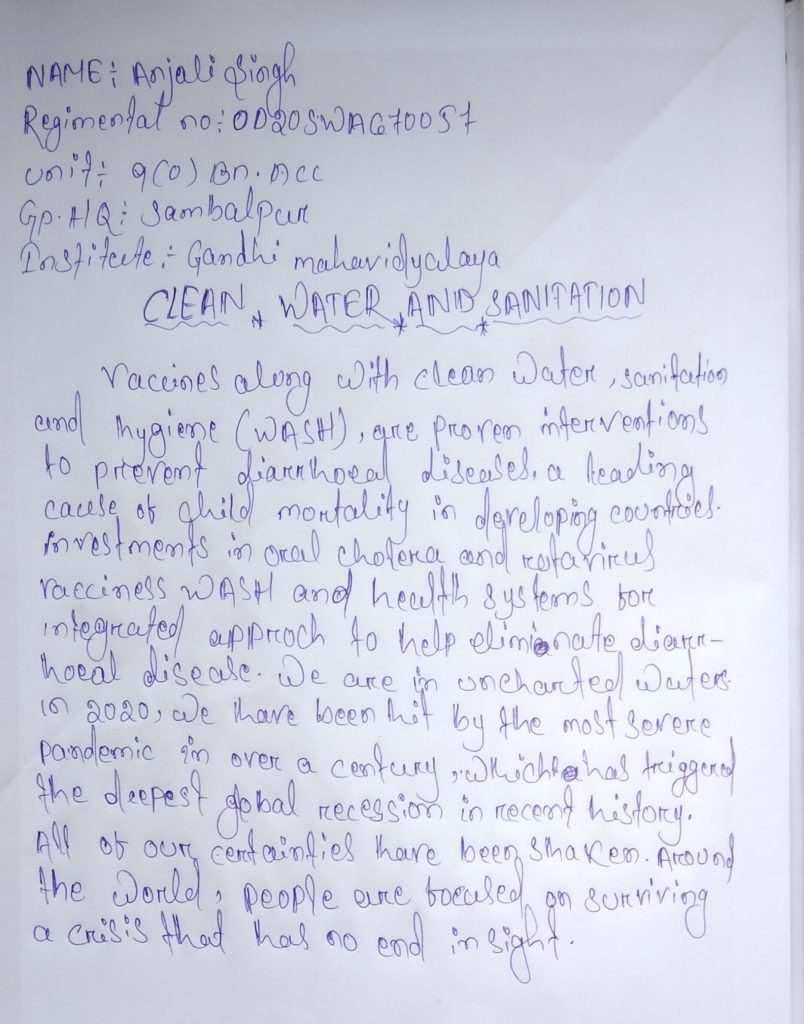 NAME: Anjali Singh
Regimental no: OD20SWAG70057
unit: 9(O) Bn. NCC
Gp. HQ: Sambalpur
Institute: Gandhi mahavidyalaya
CLEAN WATER AND SANITATION
Vaccines along with clean Water, sanitation
and hygiene (WASH), are proven interventions
to prevent diarrhoeal diseases, a leading
cause of child mortality in developing countries.
Investments in oral cholera and rotavirus
vacciness WASH and health systems for
integrated approch to help eliminate diarr-
hoeal disease. We are in uncharted waters.
in 2020, we have been hit by the most severe
pandemic in over a century, which has triggered
the deepest global recession in recent history.
All of our certainties have been shaken. Around
the World, people are focused on surviving
a crisis that has no end in sight.